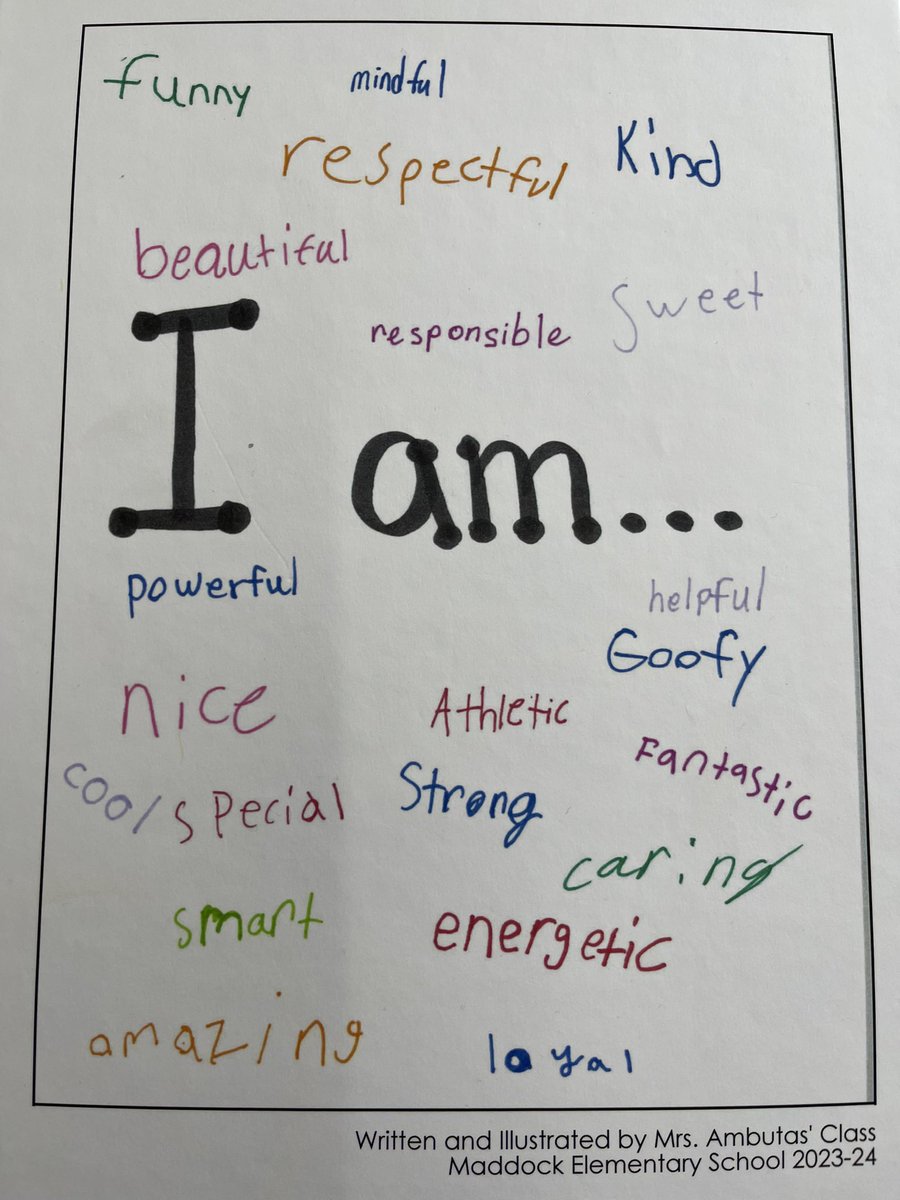 funny mindful
respectful Kind
beautiful
responsible sweet
I am...
powerful helpful
Goofy
nice Athletic
Fantastic
cool special Strong
caring
smart energetic
amazing loyal
Written and Illustrated by Mrs. Ambutas' Class
Maddock Elementary School 2023-24